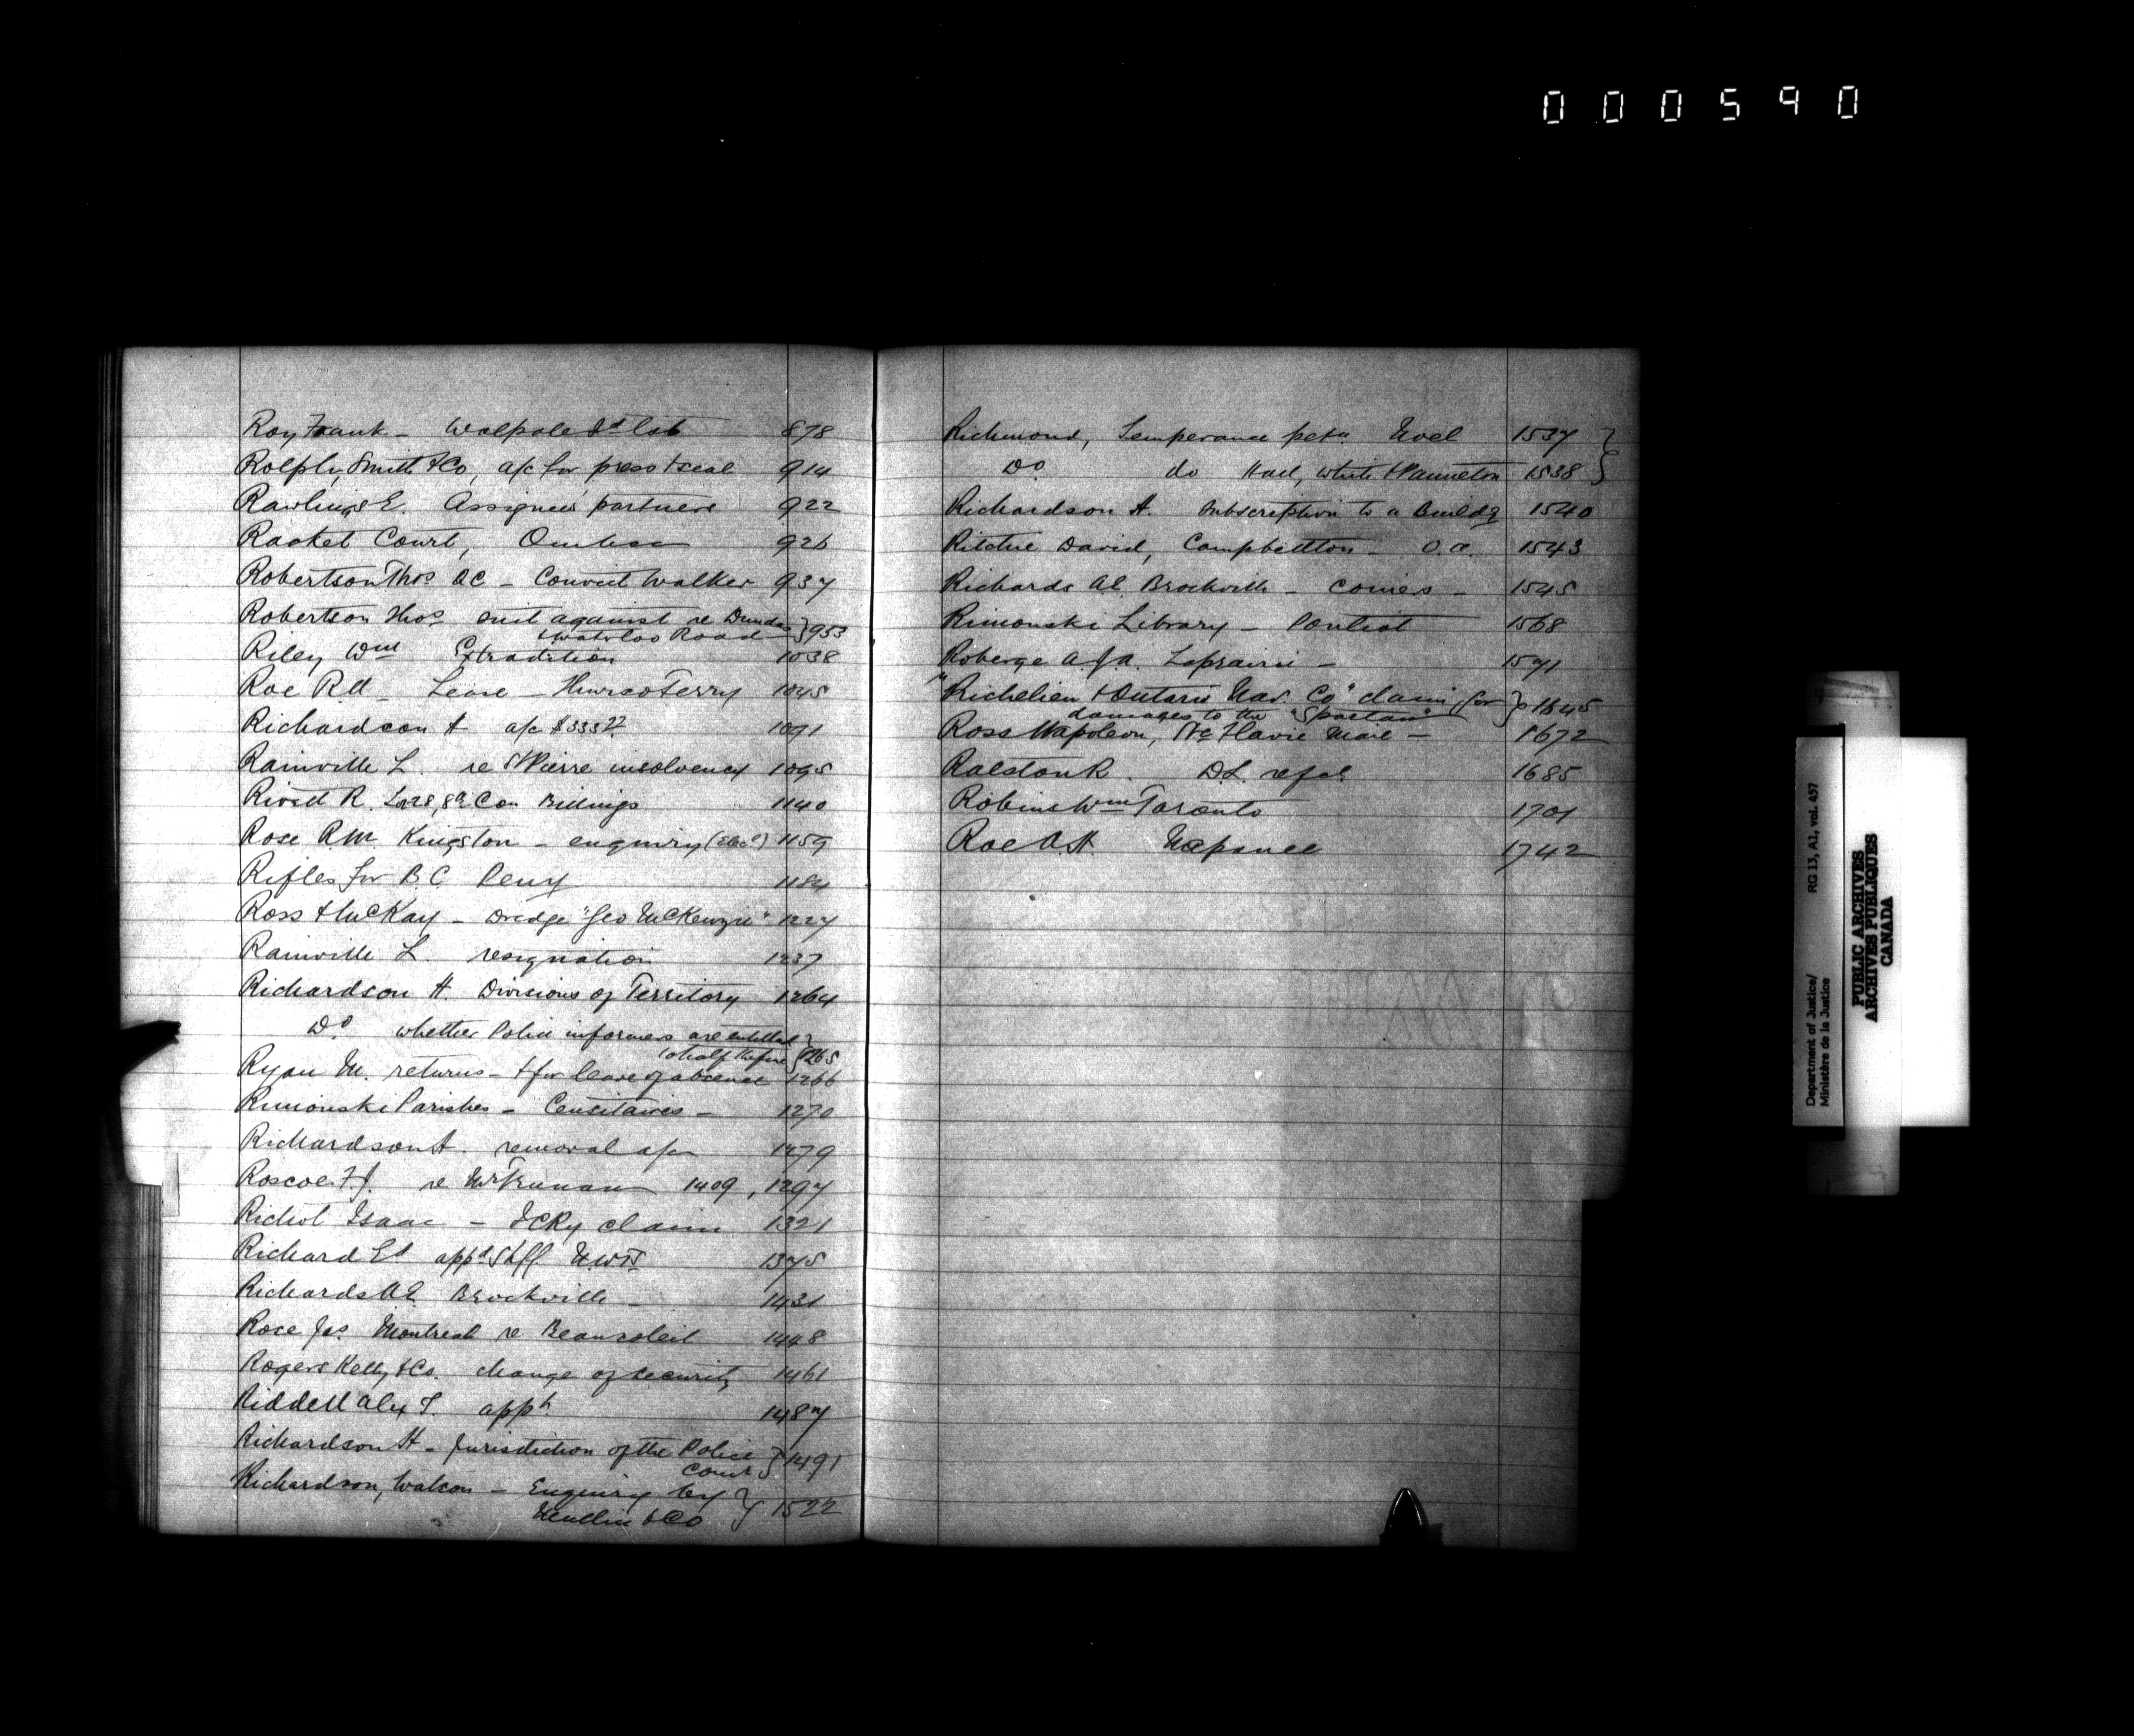 000590
Roy Frank - Walpole Isd lot 878
Rolph, Smith & Co, a/c for press & seal 914
Rawlings E. Assignees' partners 922
Racket Court, Quebec 926
Robertson Thos QC - Convict Walker 937
Robertson Thos suit against re Dundas } 953
& Waterloo Road
Riley Wm Extradition 1038
Roe R.H. Lease - Thurso Ferry 1045
Richardson H a/c $333.77 1091
Rainville L. re St Pierre insolvency 1095
Rivett R. Lot 28, 8th Con Billings 1140
Rose R.M. Kingston - enquiry 1159
Rifles for B.C. Peny 1184
Ross & McKay - Dredge "Geo McKenzie" 1227
Rainville L. resignation 1237
Richardson H. Divisions of Territory 1264
Do whether Police informers are entitled }
to half the fine } 1265
Ryan M. returns - & for leave of absence 1266
Rimouski Parishes - Censitaires - 1270
Richardson H. removal a/c 1279
Roscoe F.J. re 1409, 1297
Richot Isaac - ICRy claim 1321
Richard Ed appd Shff N.W.T. 1375
Richards A.E. Brockville - 1431
Rose Jas Montreal re Beausoleil 1448
Rogers Kelly & Co. change of security 1461
Riddell Alex T. appt 1487
Richardson H - Jurisdiction of the Police } 1491
Court
Richardson, Watson - Enquiry by } 1522
& Co
Richmond, Temperance petn Noel 1537 }
Do do Hall, White & Panneton 1538 }
Richardson H. Subscription to a Buildg 1540
Ritchie David, Campbellton - 1543
Richards A.E. Brockville - - 1545
Rimouski Library - 1568
Roberge A.J.A. Laprairie - 1591
"Richelieu & Ontario Nav. Co" claim for } 1645
damages to the "Spartan"
Ross Napoleon, Ste Flavie Mail - 1672
Ralston R. D.L. refd. 1685
Robins Wm Toronto 1701
Roe A.H. Napanee 1742
Department of Justice/
Ministère de la Justice
RG 13, A1, vol. 457
PUBLIC ARCHIVES
ARCHIVES PUBLIQUES
CANADA